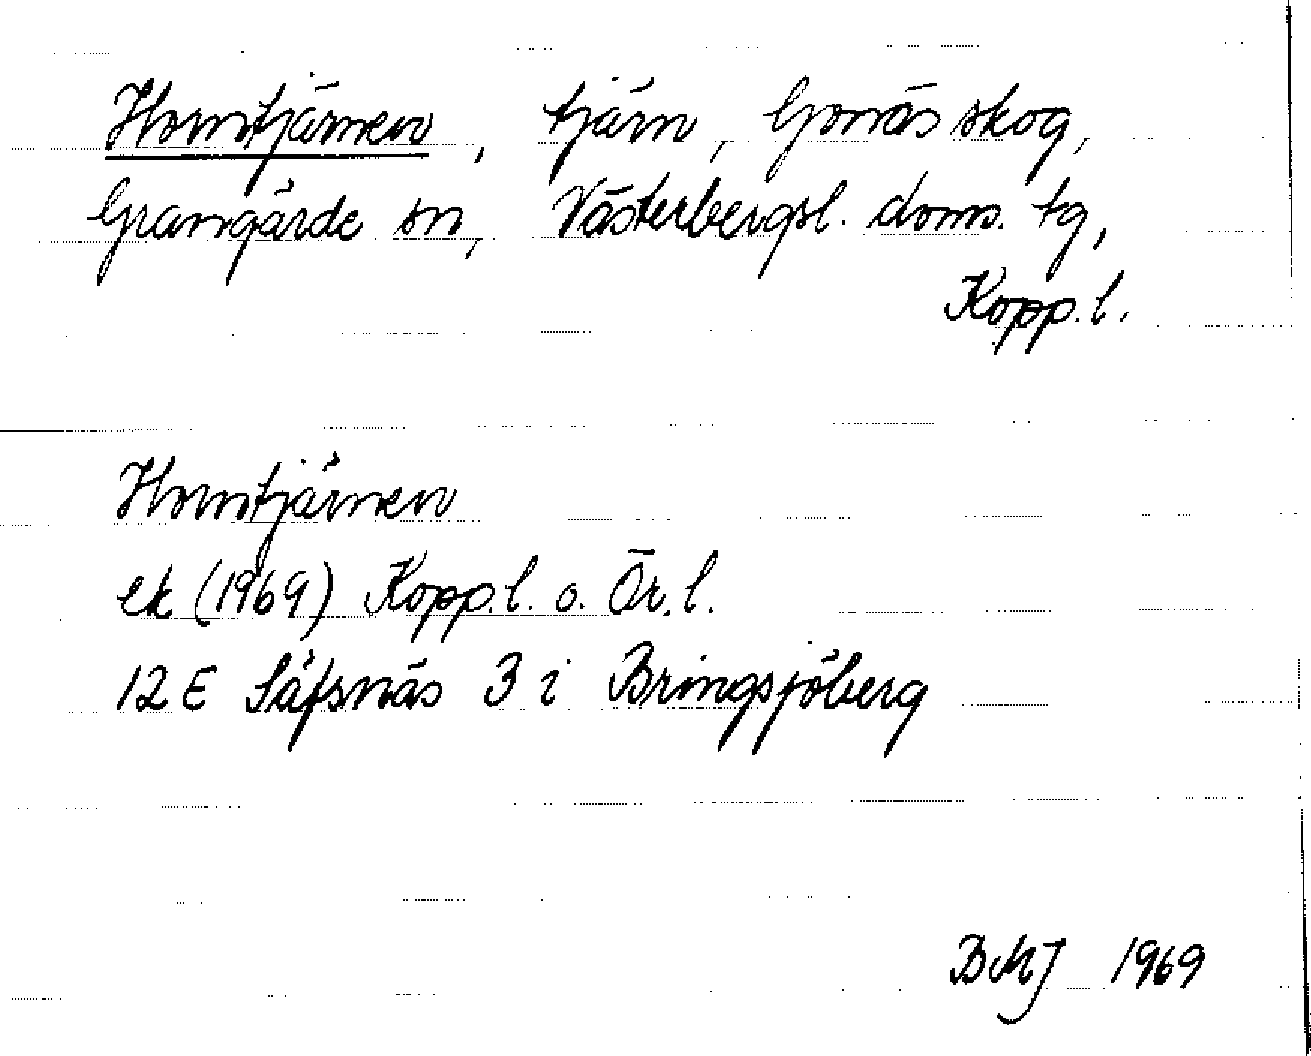 Horntjärnen, tjärn, Gonäs skog,
Grangärde sn, Västerbergsl. doms. tg,
Kopp. l.
Horntjärnen
ek (1969) Kopp. l. o. Ör. l.
12 E Säfsnäs 3 i Bringsjöberg
BMJ 1969